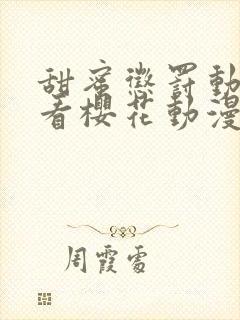 甜蜜懲罰動
看櫻花動漫
周霞雲